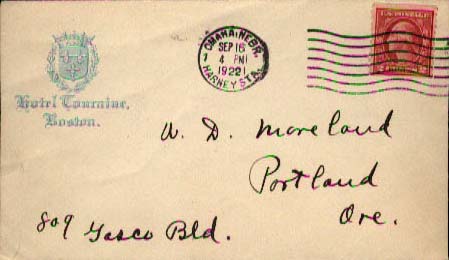 Hotel Touraine,
Boston.
OMAHA, NEBR.
SEP 16
4 PM
1922
HARNEY STA.
1
U.S. POSTAGE
W. D. Moreland
Portland
Ore.
809 Gasco Bld.